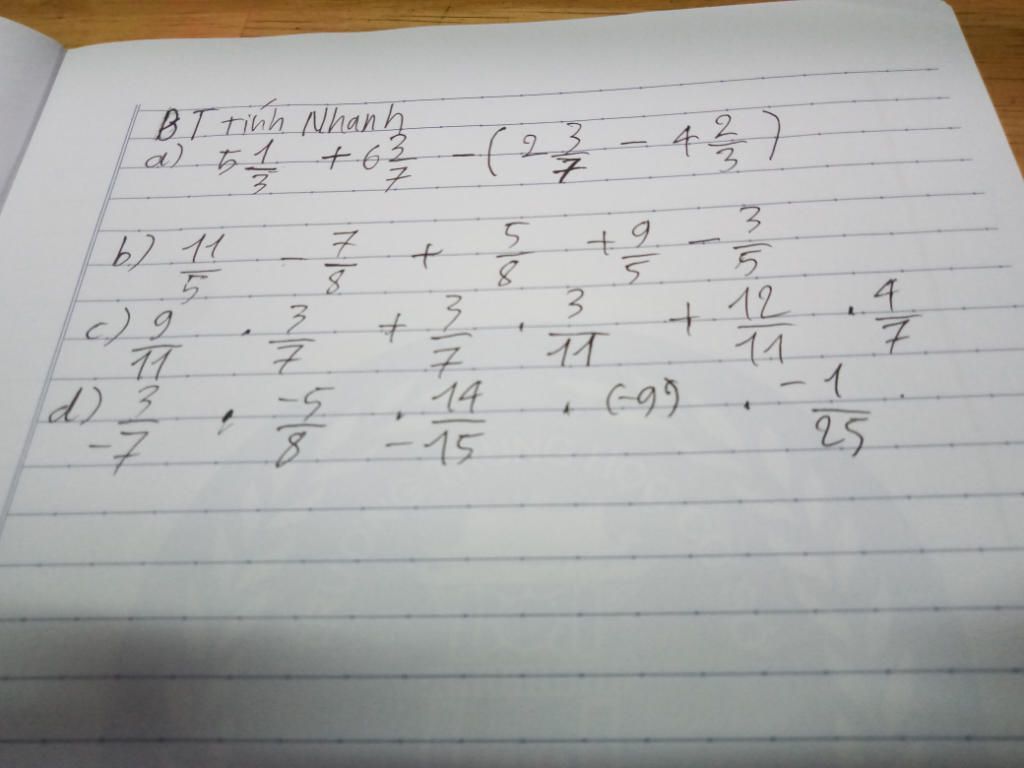 BT tính Nhanh
a) 5 1/3 + 6 3/7 - ( 2 3/7 - 4 2/3 )
b) 11/5 - 7/8 + 5/8 + 9/5 - 3/5
c) 9/11 . 3/7 + 3/7 . 3/11 + 12/11 . 4/7
d) 3/-7 . -5/8 . 14/-15 . (-9) . -1/25